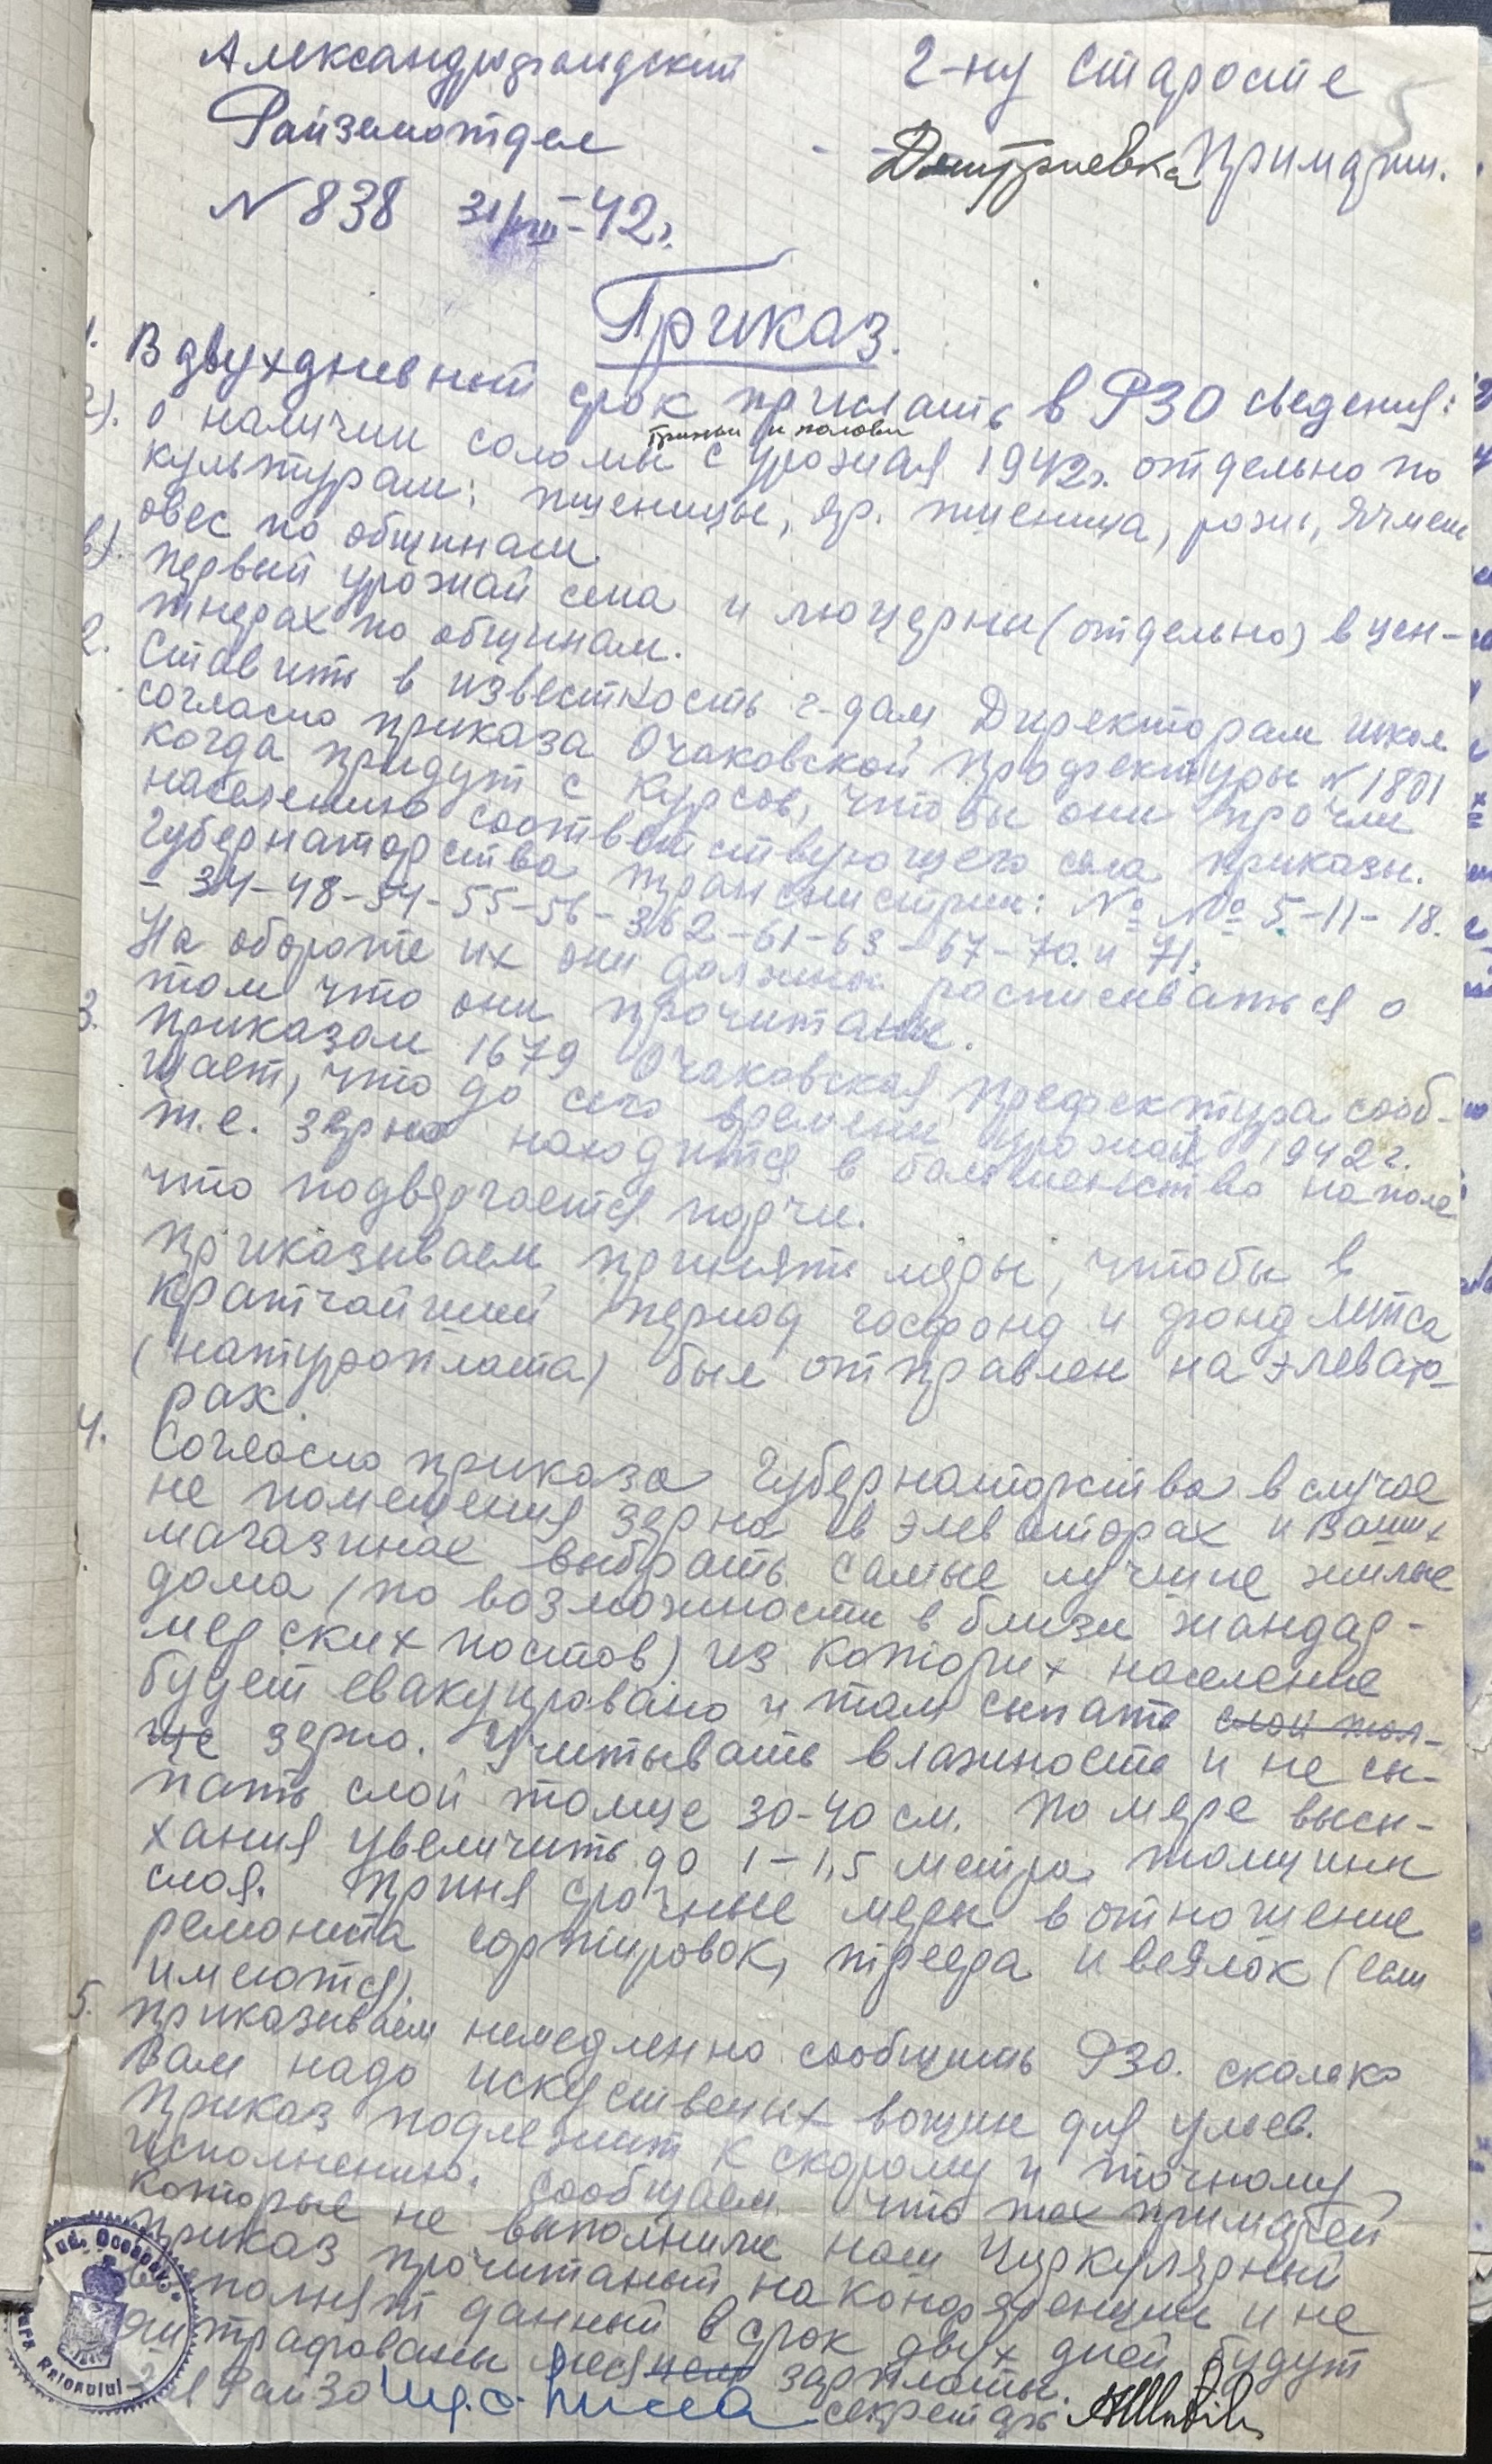 Александрфельдский
Райземотдел
N 838 31/VIII-42г.
Г-ну Старосте
Дмитриевка Примарии.
5
Приказ.
1. В двухдневный срок прислать в РЗО сведения:
а). о наличии соломы с урожая 1942г. отдельно по
и половы
культурам: пшеницы, яр. пшеница, рожь, ячмень
овес по общинам.
в). первый урожай сена и люцерны (отдельно) в цен-
тнерах по общинам.
2. Ставить в известность г-дам Директорам школ
согласно приказа Очаковской префектуры N 1801
когда придут с курсов, чтобы они прочли
населению соответствующего села приказы.
Губернаторства транснистрии: №№ 5-11-18.
- 34-48-54-55-56-362-61-63-67-70 и 71.
На обороте их они должны расписываться о
том что они прочитаны.
3. Приказом 1679 Очаковская префектура сооб-
щает, что до сего времени урожай 1942г.
т.е. зерно находится в большенство на поле
что подвергается порчи.
Приказываем принять меры, чтобы в
кратчайший период госфонд и фонд Мтса
(натуроплата) был отправлен на элевато-
рах.
4. Согласно приказа Губернаторства в случае
не помещения зерна в элеваторах и Ваших
магазинае выбрать самые лучшие жилые
дома (по возможности в близи жандар-
мерских постов) из которих население
будет евакуировано и там сыпать слой тол-
ще зерно. Учитывать влажность и не сы-
пать слой толще 30-40 см. по мере высы-
хания увеличить до 1-1,5 метра толщины
слоя. Приня срочные меры в отношение
ремонта сортировок, триера и веялок (если
имеются).
5. Приказываем немедленно сообщить РЗО. сколько
Вам надо искуственых вощин для ульев.
Приказ подлежит к скорому и точному
исполнению. Сообщаем что тех примарей
которые не выполнили наш циркулярный
приказ прочитаный на конференции и не
выполнят данный в срок двух дней будут
штрафованы зарплаты.
Зав РайЗО
секретарь
Raionului